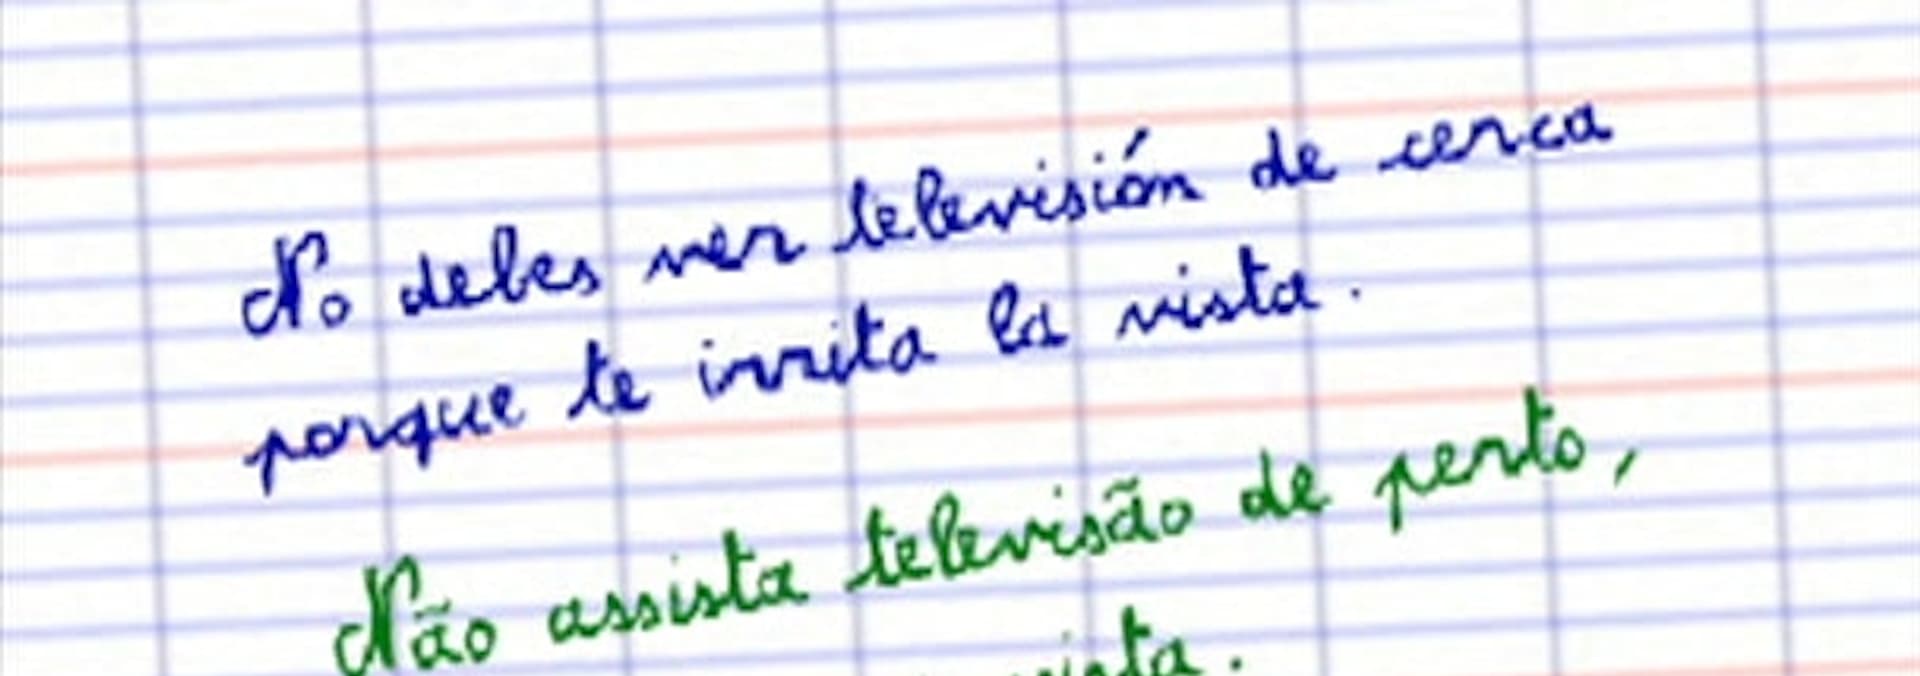 No debes ver televisión de cerca
porque te irrita la vista.
Não assista televisão de perto,
vista.